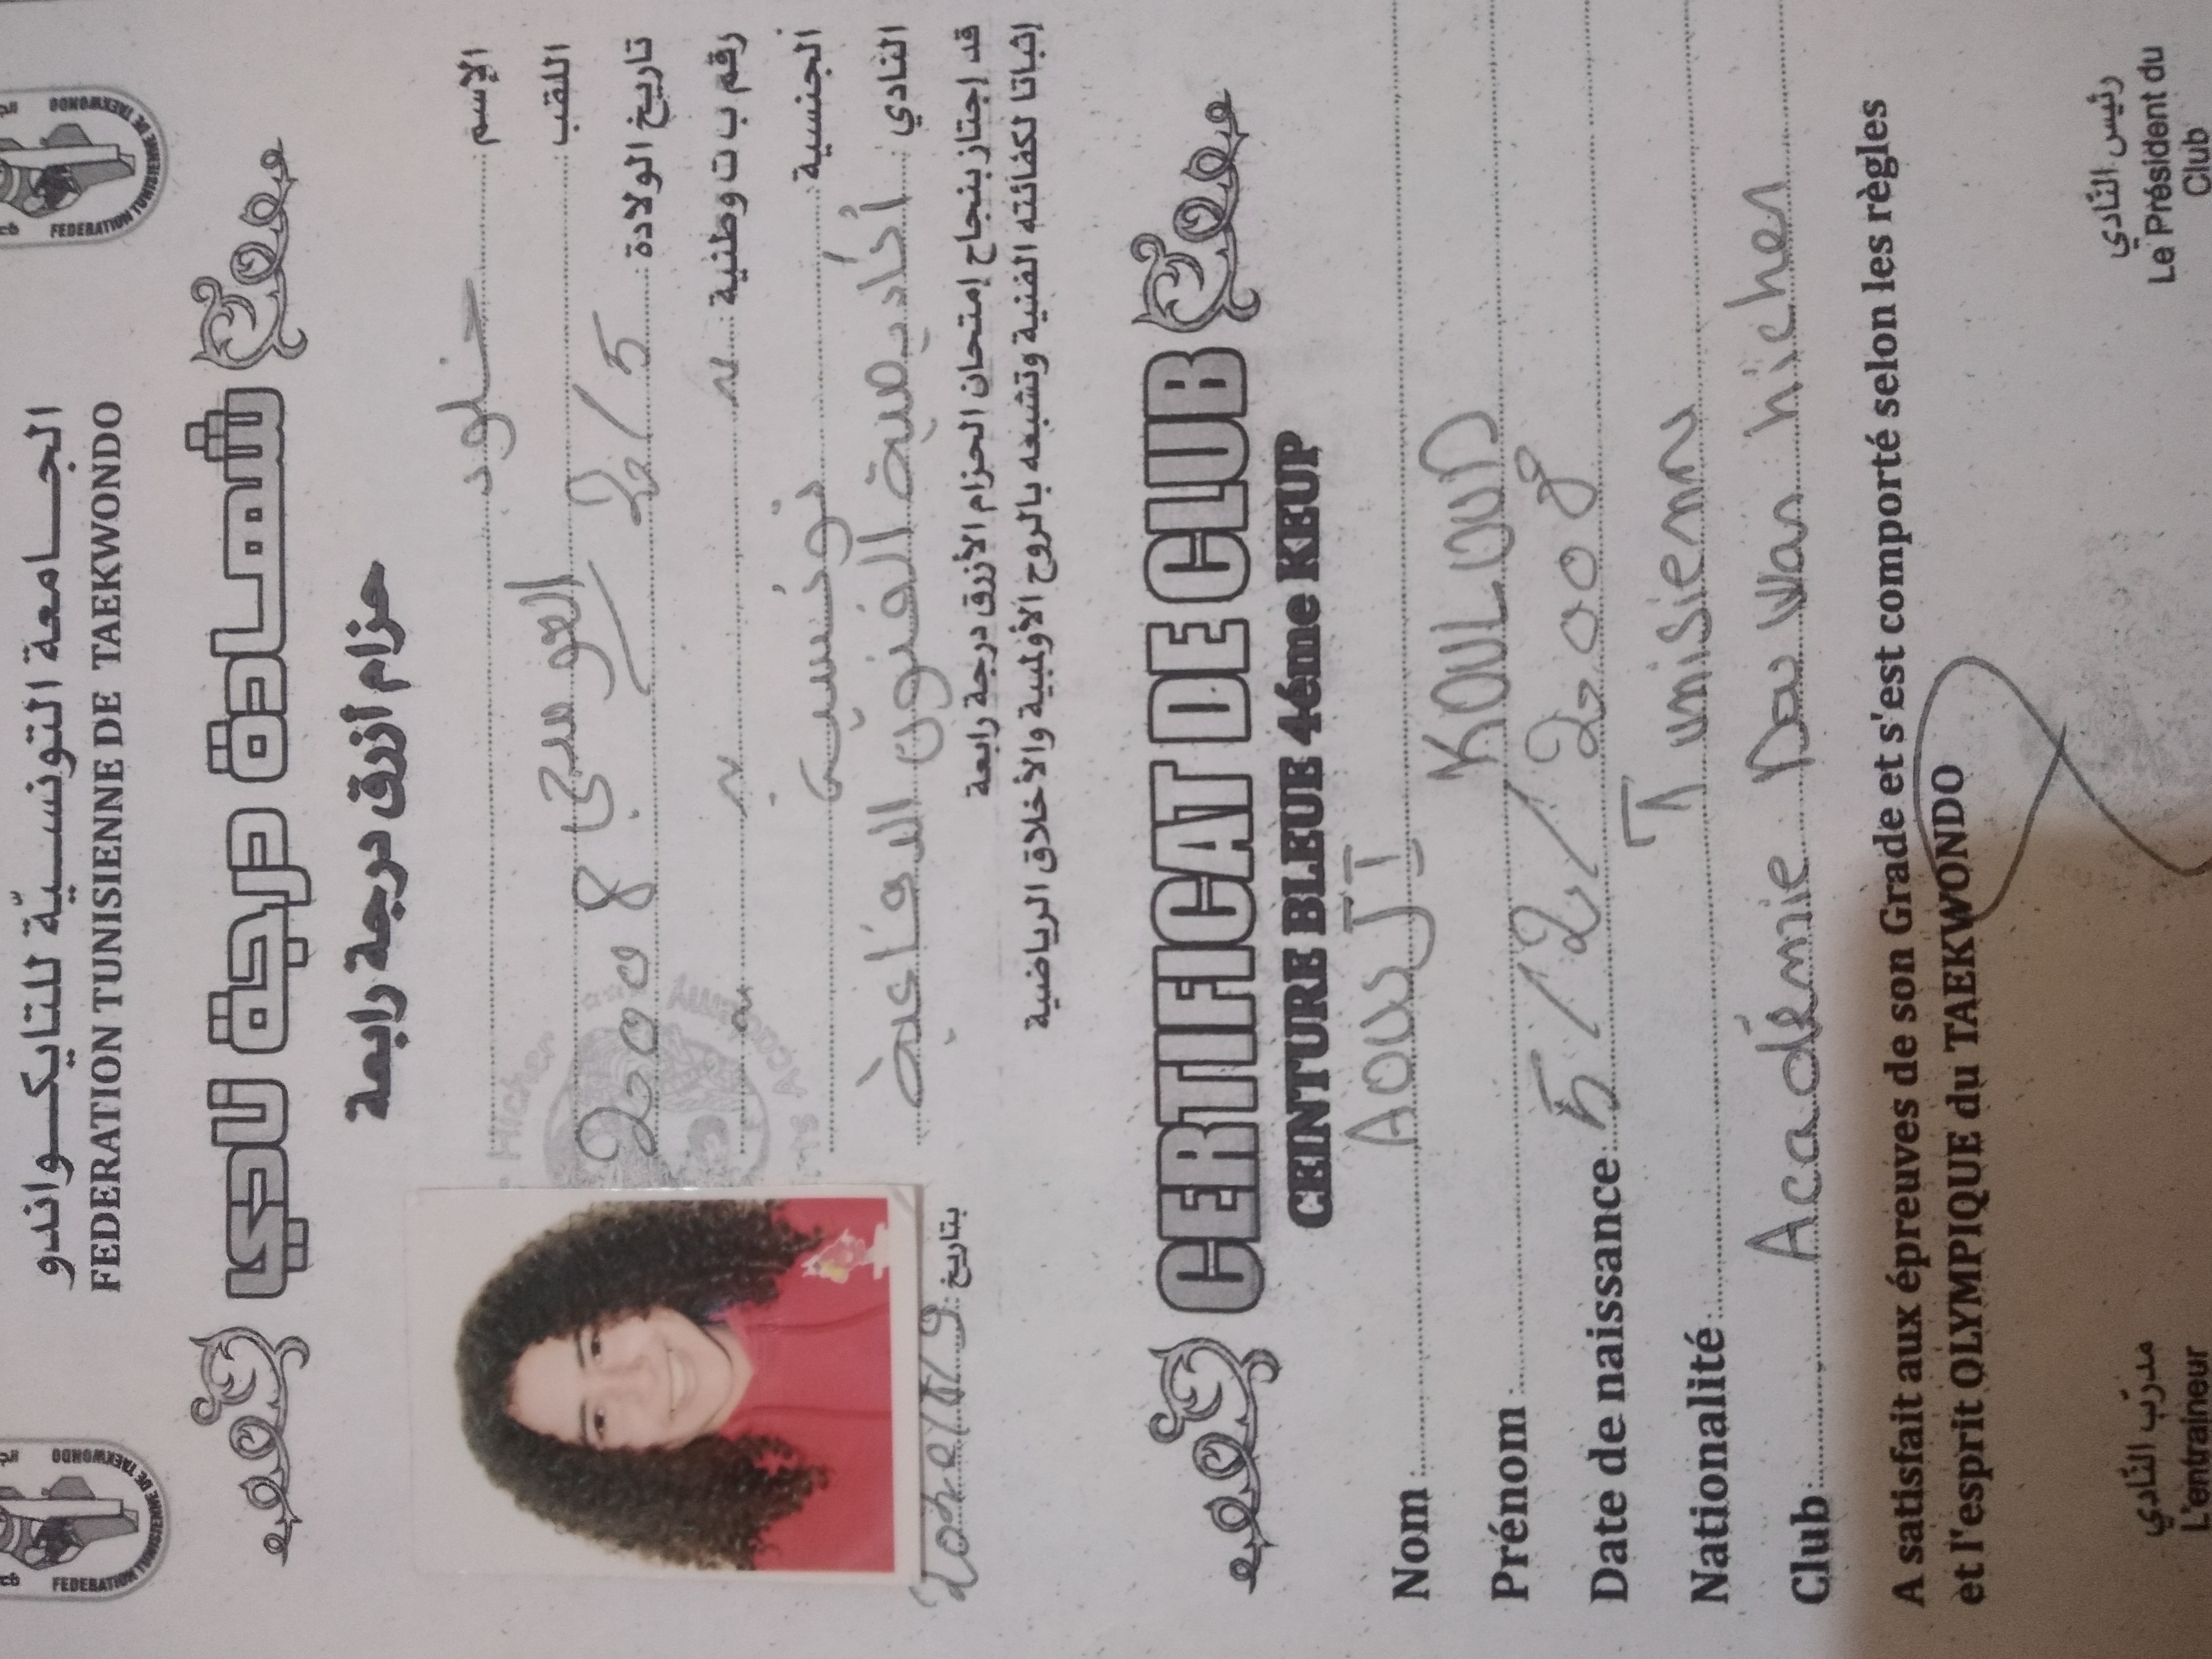 الجامعة التونسيّة للتايكواندو
FEDERATION TUNISIENNE DE TAEKWONDO
FEDERATION TUNISIENNE DE TAEKWONDO
FEDERATION TUNISIENNE DE TAEKWONDO
شهادة درجة نادي
حزام أزرق درجة رابعة
الإسم: خلود
اللقب: العوجي
تاريخ الولادة: 5/2/2008
رقم ب ت وطنية:
الجنسية: تونسية
النادي: أكاديمية الفنون الدفاعية
قد إجتاز بنجاح إمتحان الحزام الأزرق درجة رابعة
إثباتا لكفائته الفنية وتشبعه بالروح الأولمبية والأخلاق الرياضية
بتاريخ:
CERTIFICAT DE CLUB
CEINTURE BLEUE 4éme KEUP
Nom: AOUJI
Prénom: KOULOUD
Date de naissance: 5/2/2008
Nationalité: Tunisienn
Club: Académie Dau War hicher
A satisfait aux épreuves de son Grade et s'est comporté selon les règles
et l'esprit OLYMPIQUE du TAEKWONDO
مدرّب النّادي
L'entraineur
رئيس النّادي
Le Président du
Club